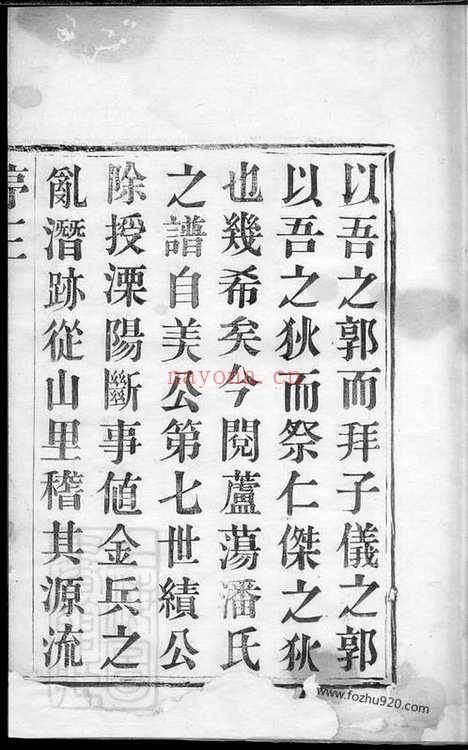 以吾之郭而拜子儀之郭
以吾之狄而祭仁傑之狄
也幾希矣今閱蘆蕩潘氏
之譜自美公第七世績公
除授溧陽斷事值金兵之
亂潛跡從山里稽其源流
nayona.cn
www.fozhu920.com